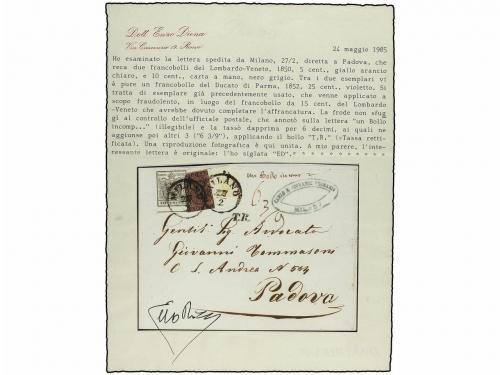 Dott. Enzo Diena
Via Crescenzio 19, Roma
24 maggio 1985
Ho esaminato la lettera spedita da Milano, 27/2, diretta a Padova, che
reca due francobolli del Lombardo-Veneto, 1850, 5 cent., giallo arancio
chiaro, e 10 cent., carta a mano, nero grigio. Tra i due esemplari vi
è pure un francobollo del Ducato di Parma, 1852, 25 cent., violetto. Si
tratta di esemplare già precedentemente usato, che venne applicato a
scopo fraudolento, in luogo del francobollo da 15 cent. del Lombardo
-Veneto che avrebbe dovuto completare l'affrancatura. La frode non sfug
gì al controllo dell'ufficiale postale, che annotò sulla lettera "un Bollo
incomp..." (illegibile) e la tassò dapprima per 6 decimi, ai quali ne
aggiunse poi altri 3 ("6 3/9"), applicando il bollo "T.R." (=Tassa retti-
ficata). Una riproduzione fotografica è qui unita. A mio parere, l'inte-
ressante lettera è originale: l'ho siglata "ED".
MILANO
27
2
un Bollo
6 3/9
MILANO
T.R.
Gentil Sig. Avvocato
Giovanni Tommasoni
C. S. Andrea N 584
Padova